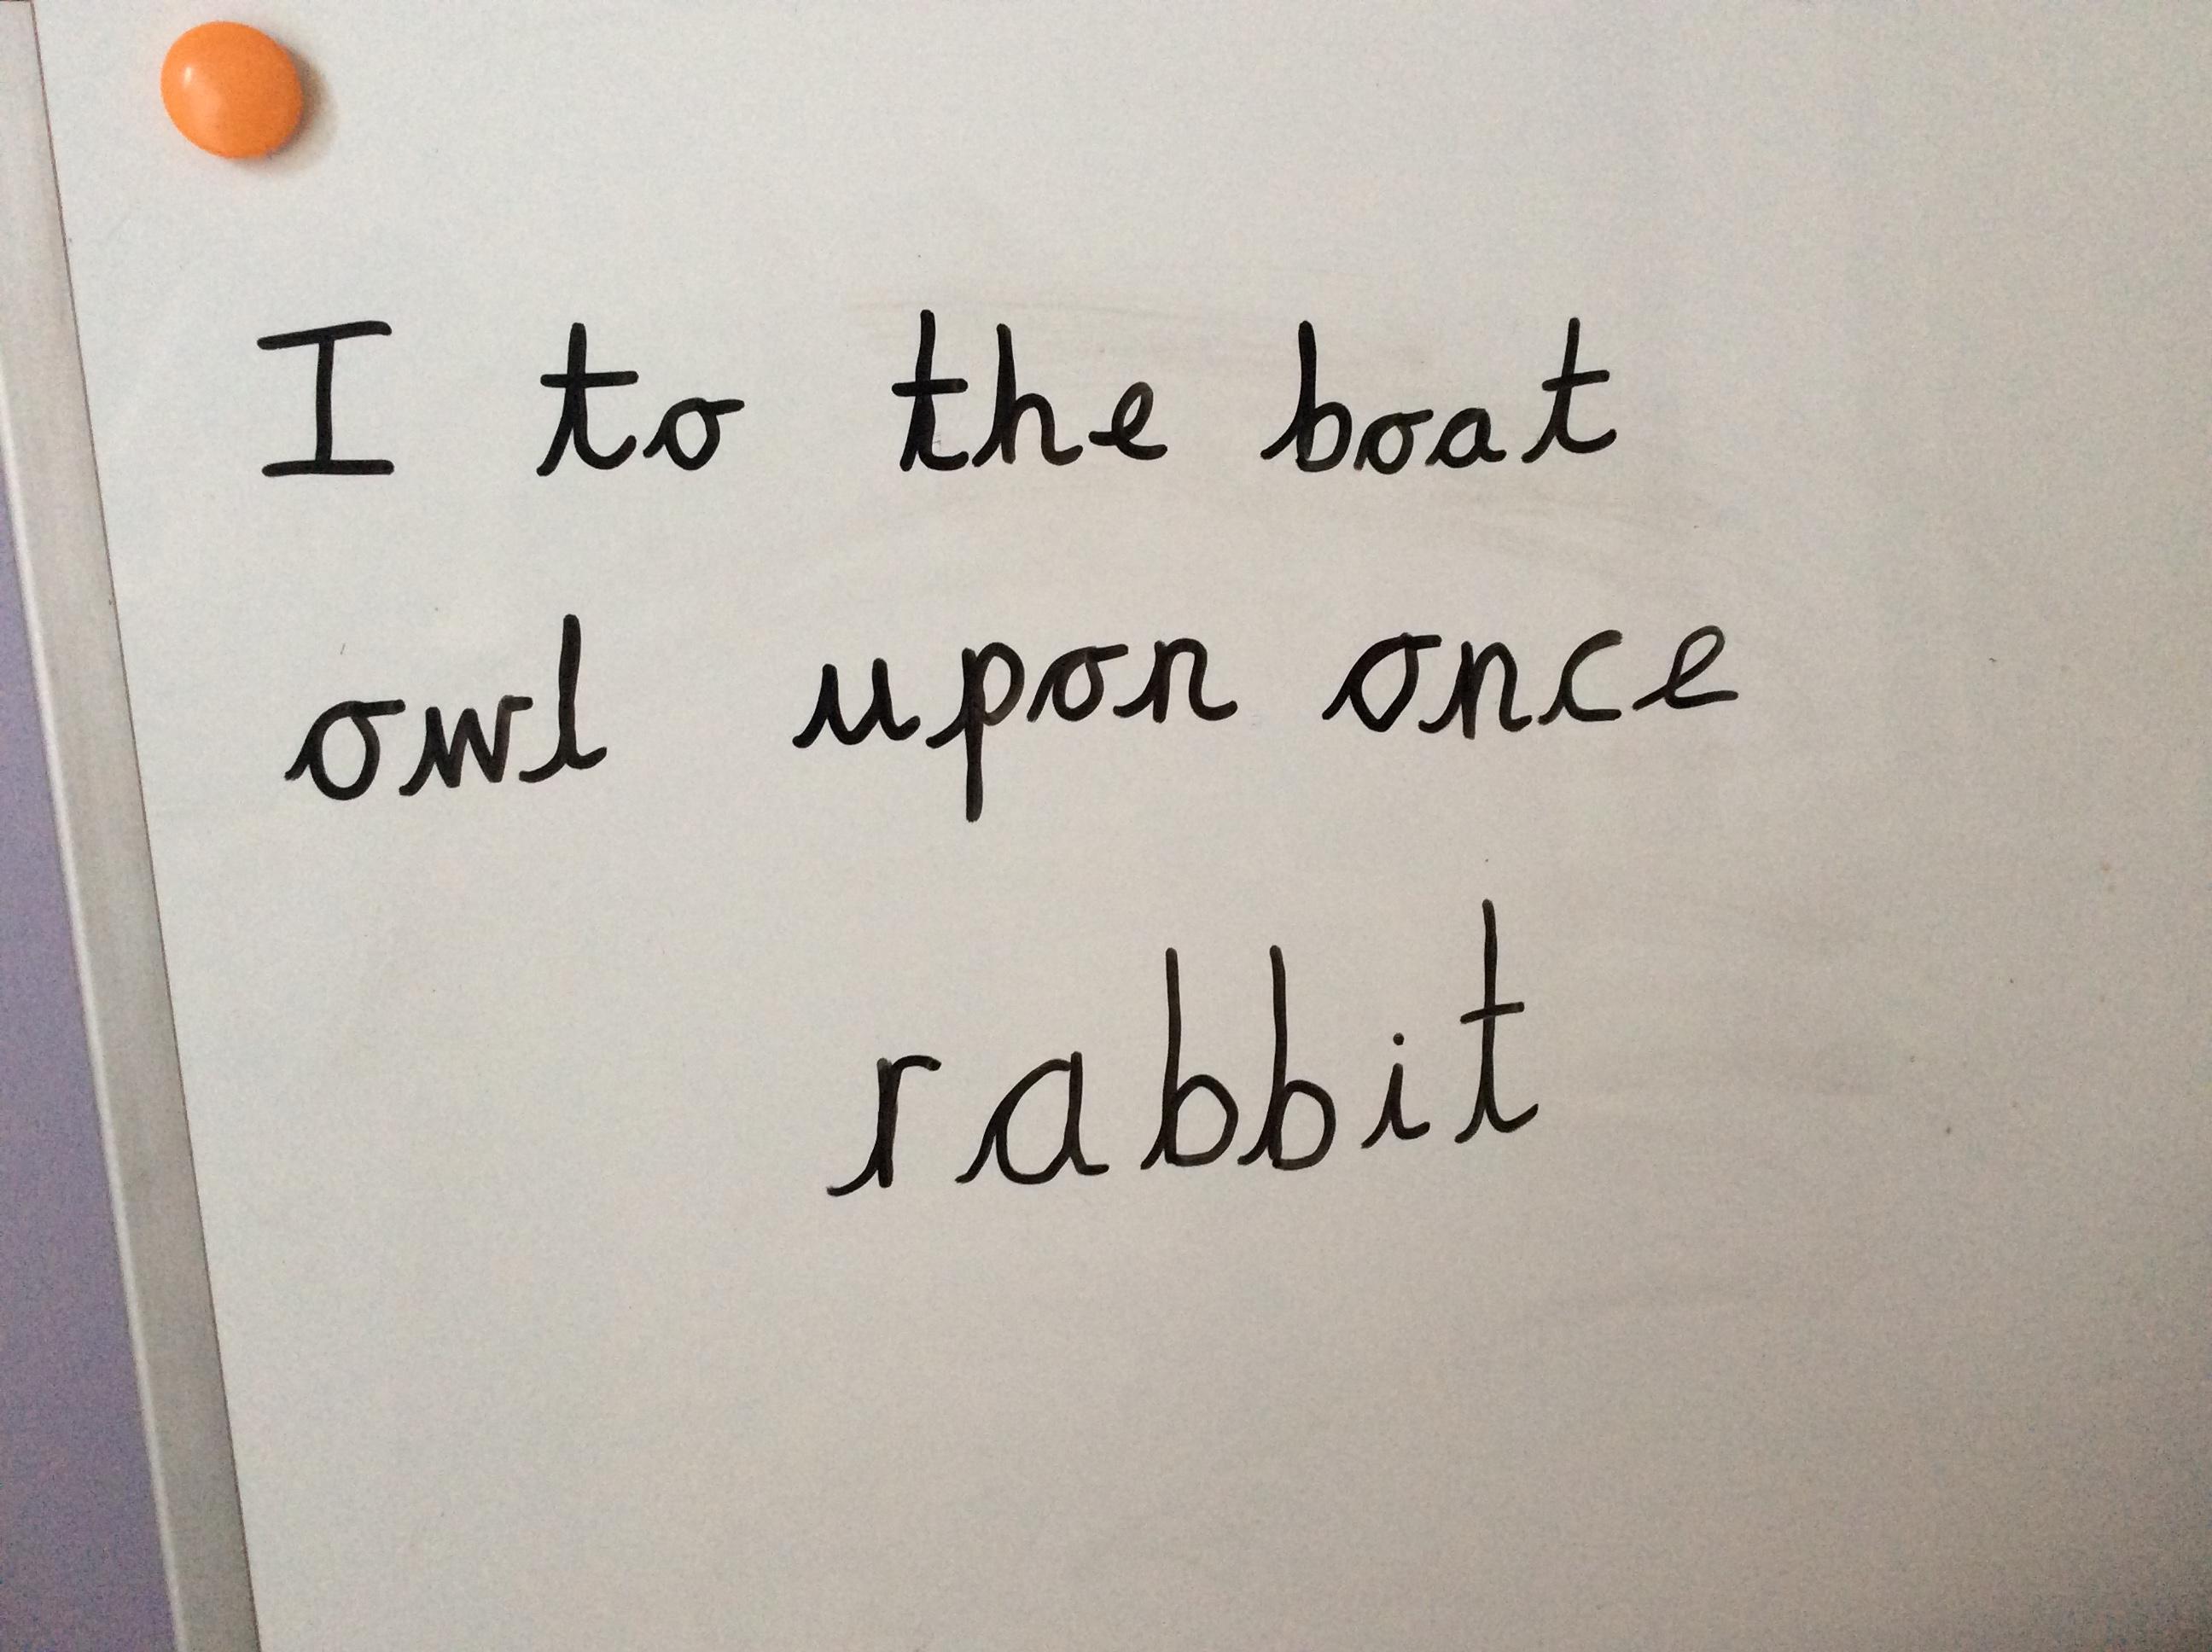 I to the boat
owl upon once
rabbit